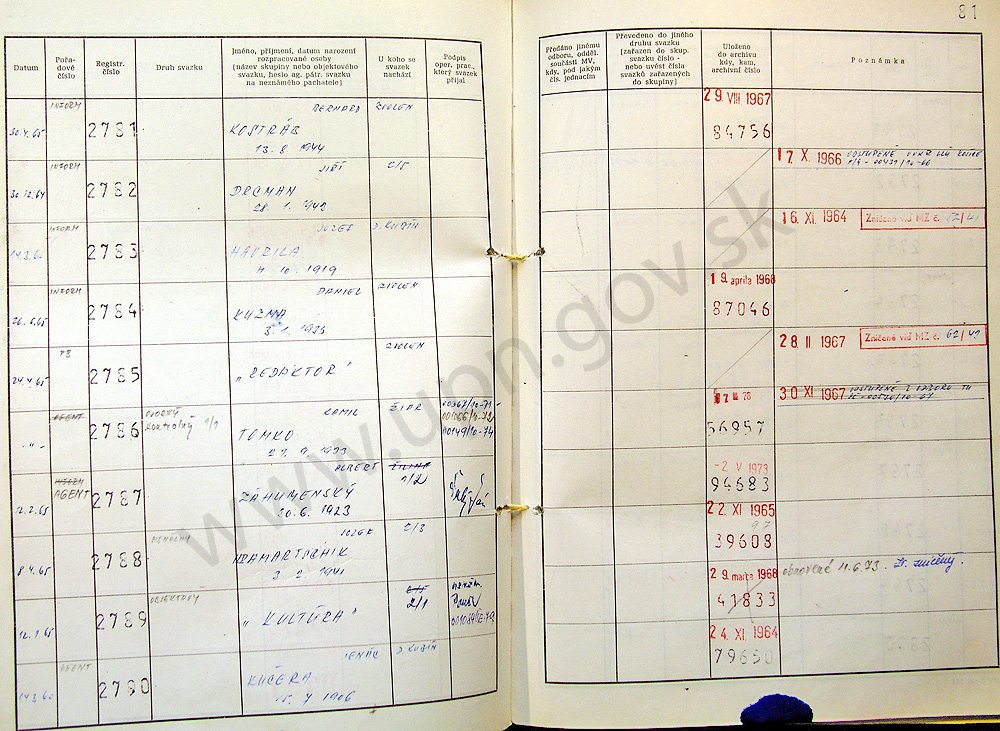 81
Datum
Pořa-
dové
číslo
Registr.
číslo
Druh svazku
Jméno, příjmení, datum narození
rozpracované osoby
(název skupiny nebo objektového
svazku, heslo ag. pátr. svazku
na neznámého pachatele)
U koho se
svazek
nachází
Podpis
oper. prac.,
který svazek
přijal
Předáno jinému
odboru, odděl.
součásti MV,
kdy, pod jakým
čís. jednacím
Převedeno do jiného
druhu svazku
(zařazen do skup.
svazku číslo -
nebo uvést čísla
svazků zařazených
do skupiny)
Uloženo
do archivu
kdy, kam,
archivní číslo
Poznámka
INFORM
30.4.65
2781
BERNARD
KOSTRÁB
13. 8. 1944
ZVOLEN
29. VIII 1967
84756
INFORM
30.12.64
2782
JIŘÍ
DRCMAN
28. 1. 1942
17. X. 1966
INFORM
14.3.60
2783
JOZEF
HAVRILA
10. 1919
D. KUBÍN
16. XI. 1964
Zničené viď MZ č. 62/41
INFORM
26.5.65
2784
DANIEL
KUZMA
3. 1. 1923
ZVOLEN
19. apríla 1968
87046
PS
24.4.65
2785
„REDAKTOR"
ZVOLEN
28. II 1967
Zničené viď MZ č. 62/41
AGENT
-"-
2786
KAMIL
TOMKO
27. 9. 1923
ŽIAR
56957
30. XI. 1967
AGENT
12.2.65
2787
ALBERT
ZÁHUMENSKÝ
10. 6. 1923
ŽILINA
1/2
-2. V 1973
94683
8.4.65
2788
JOZEF
3. 2. 1941
2/3
22. XI 1965
97
39608
12.1.65
2789
OBJEKTOVÝ
„KULTÚRA"
2/1
29. marca 1968
41833
obnovené 11.6.73. Zr. zničený.
AGENT
14.3.60
2790
IGNÁC
KUČERA
15. 7. 1906
D. KUBÍN
24. XI. 1964
79650
www.upn.gov.sk